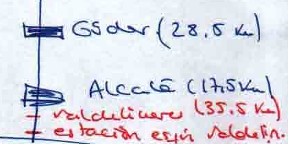 Gúdar (28,5 Km)
Alcalá (17,5 Km)
valdelinares (35,5 Km)
estación esquí valdelin.